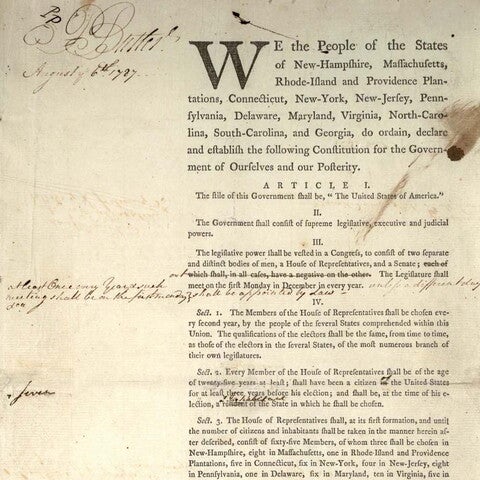 PP
P. Butler
August 6th 1787.
WE the People of the States
of New-Hampshire, Maſſachuſetts,
Rhode-Iſland and Providence Plan-
tations, Connecticut, New-York, New-Jerſey, Penn-
ſylvania, Delaware, Maryland, Virginia, North-Caro-
lina, South-Carolina, and Georgia, do ordain, declare
and eſtabliſh the following Conſtitution for the Govern-
ment of Ourſelves and our Poſterity.
ARTICLE I.
The ſtile of this Government ſhall be, "The United States of America."
II.
The Government ſhall conſiſt of ſupreme legiſlative, executive and judicial
powers.
III.
The legiſlative power ſhall be veſted in a Congreſs, to conſiſt of two ſeparate
and diſtinct bodies of men, a Houſe of Repreſentatives, and a Senate; each of
which ſhall, in all caſes, have a negative on the other. The Legiſlature ſhall
meet on the firſt Monday in December in every year. unless a different day
at least Once every Year & such
meeting shall be on the first monday
shall be appointed by Law
IV.
Sect. 1. The Members of the Houſe of Repreſentatives ſhall be choſen every
ſecond year, by the people of the ſeveral States comprehended within this
Union. The qualifications of the electors ſhall be the ſame, from time to time,
as thoſe of the electors in the ſeveral States, of the moſt numerous branch
of their own legiſlatures.
Sect. 2. Every Member of the Houſe of Repreſentatives ſhall be of the age
of twenty-five years at leaſt; ſhall have been a citizen of the United States
for at leaſt three years before his election; and ſhall be, at the time of his
seven
election, a reſident of the State in which he ſhall be choſen.
Sect. 3. The Houſe of Repreſentatives ſhall, at its firſt formation, and until
the number of citizens and inhabitants ſhall be taken in the manner herein af-
ter deſcribed, conſiſt of ſixty-five Members, of whom three ſhall be choſen in
New-Hampſhire, eight in Maſſachuſetts, one in Rhode-Iſland and Providence
Plantations, five in Connecticut, ſix in New-York, four in New-Jerſey, eight
in Pennſylvania, one in Delaware, ſix in Maryland, ten in Virginia, five in